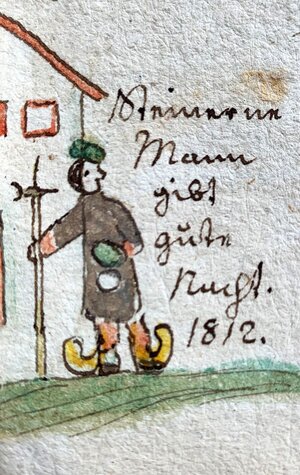 Steinerne
Mann
gibt
gute
Nacht.
1812.